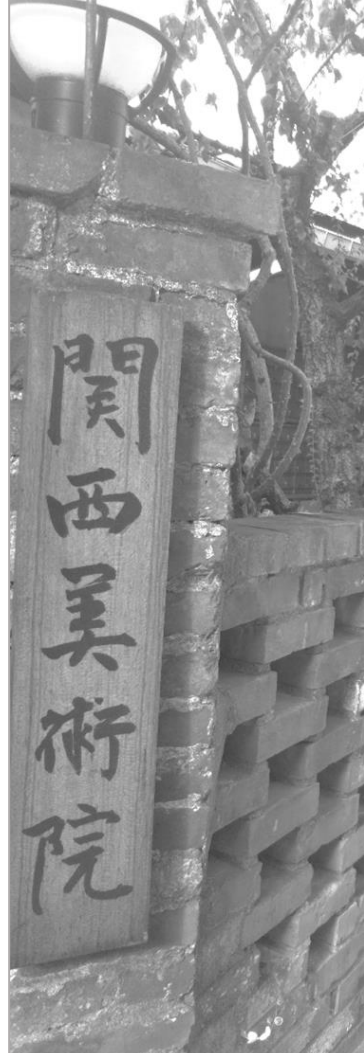 関西美術院